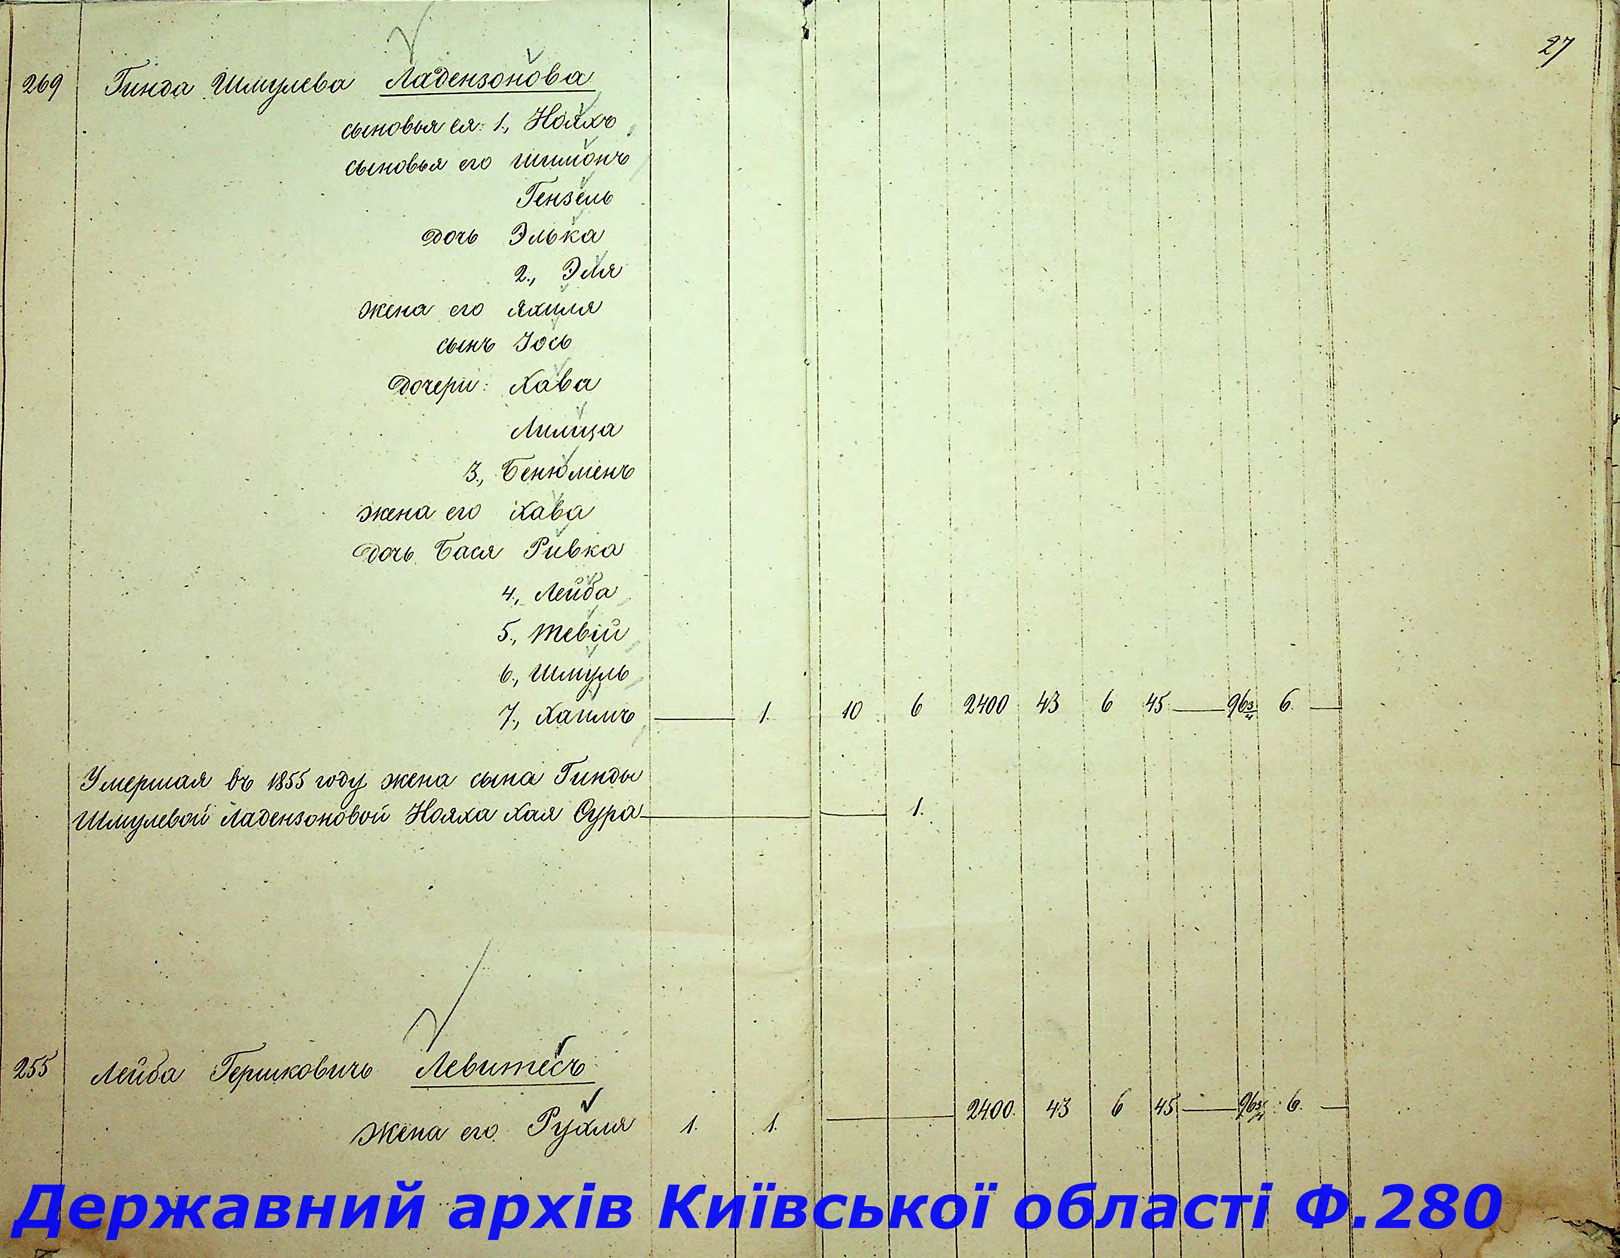 27
269 Гинда Шмулева Ладензонова
сыновья ея: 1., Нояхъ
сыновья его Шимонъ
Гензель
дочь Элька
2., Эля
жена его Яхиля
сынъ Іось
дочери: Хава
Лилица
3., Бенюменъ
жена его Хава
дочь Бася Ривка
4., Лейба
5., Тевій
6., Шмуль
7., Хаимъ — 1. 10 6 2400 43 6 45 — 96 3/4 6. —
Умершая въ 1855 году жена сына Гинды
Шмулевой Ладензоновой Нояха Хая Сура — 1.
255 Лейба Гершковичъ Левитесъ
жена его Рухля 1. 1. — 2400. 43 6 45 — 96 3/4 6. —
Державний архів Київської області Ф.280